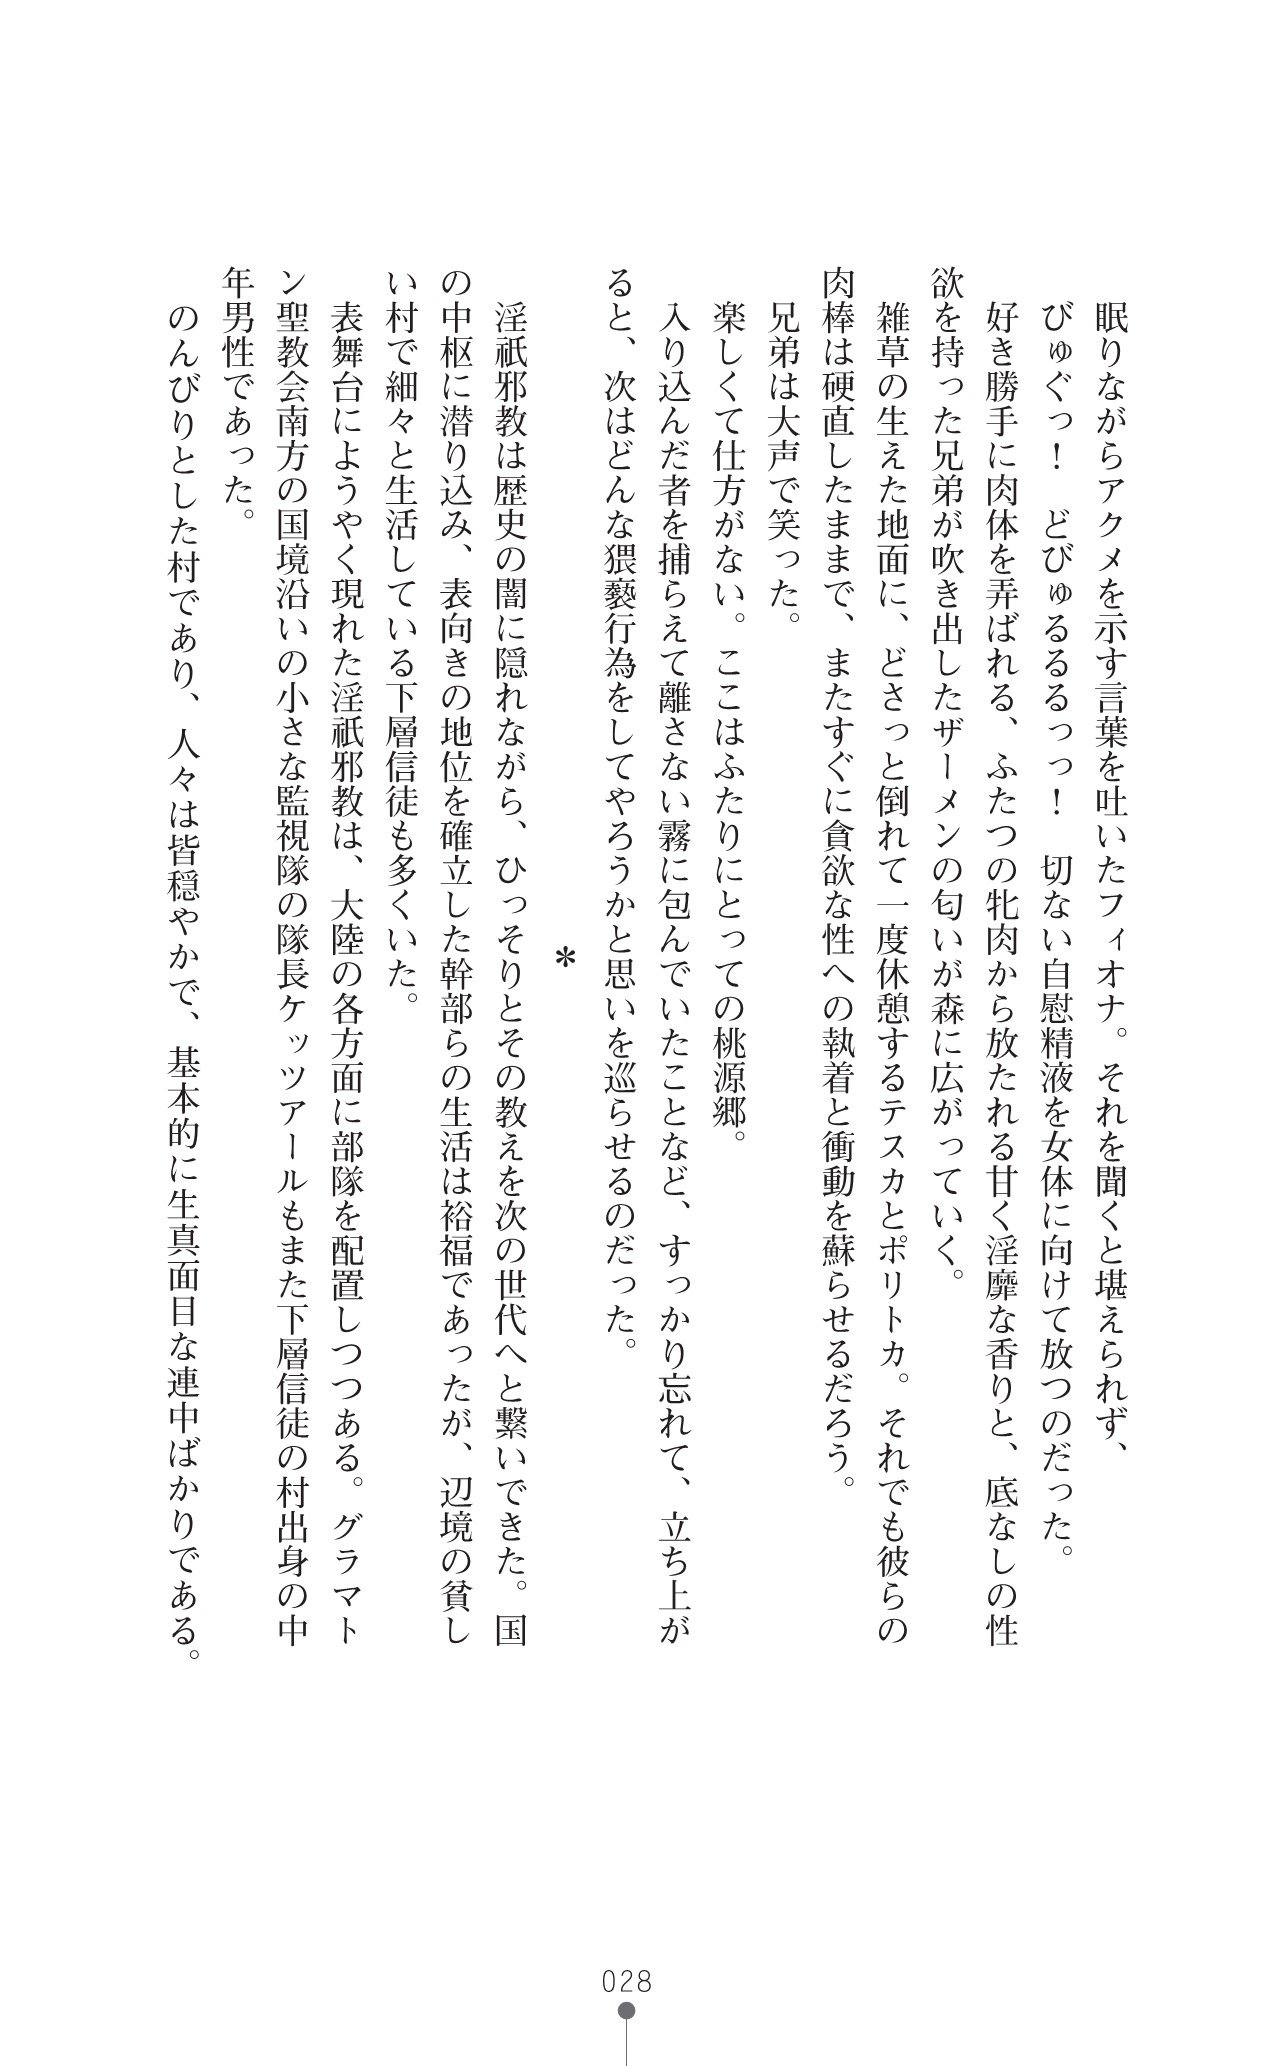 眠りながらアクメを示す言葉を吐いたフィオナ。それを聞くと堪えられず、
びゅぐっ！　どびゅるるるっっ！　切ない自慰精液を女体に向けて放つのだった。
好き勝手に肉体を弄ばれる、ふたつの牝肉から放たれる甘く淫靡な香りと、底なしの性
欲を持った兄弟が吹き出したザーメンの匂いが森に広がっていく。
雑草の生えた地面に、どさっと倒れて一度休憩するテスカとポリトカ。それでも彼らの
肉棒は硬直したままで、またすぐに貪欲な性への執着と衝動を蘇らせるだろう。
兄弟は大声で笑った。
楽しくて仕方がない。ここはふたりにとっての桃源郷。
入り込んだ者を捕らえて離さない霧に包んでいたことなど、すっかり忘れて、立ち上が
ると、次はどんな猥褻行為をしてやろうかと思いを巡らせるのだった。
＊
淫祇邪教は歴史の闇に隠れながら、ひっそりとその教えを次の世代へと繋いできた。国
の中枢に潜り込み、表向きの地位を確立した幹部らの生活は裕福であったが、辺境の貧し
い村で細々と生活している下層信徒も多くいた。
表舞台にようやく現れた淫祇邪教は、大陸の各方面に部隊を配置しつつある。グラマト
ン聖教会南方の国境沿いの小さな監視隊の隊長ケッツアールもまた下層信徒の村出身の中
年男性であった。
のんびりとした村であり、人々は皆穏やかで、基本的に生真面目な連中ばかりである。
028